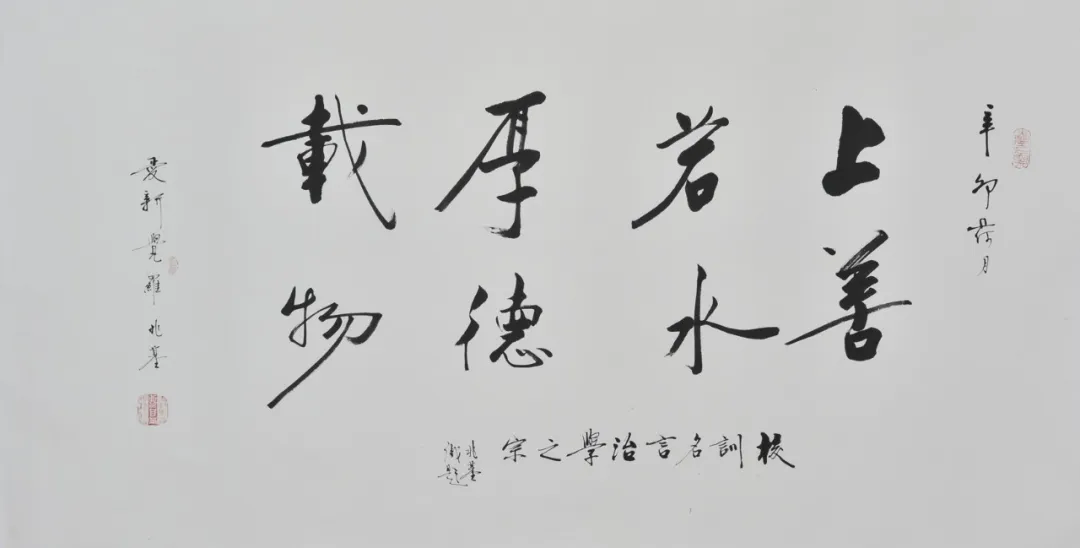 辛卯荷月
上善
若水
厚德
載物
校訓名言治學之宗
兆基
題
愛新覺羅兆基